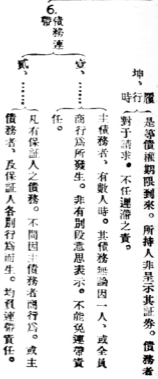 坤、履行時
是等債權期限到來。所持人非呈示其証券。債務者
對于請求。不任遲滯之責。
6.債務連帶
壹、……
主債務者、有數人時。其債務無論因一人、或全員
商行爲所發生。非有別段意思表示。不能免連帶責
任。
貳、……
凡有保証人之債務。不問因主債務者商行爲。或主
債務者、及保証人各別行爲而生。均負連帶責任。